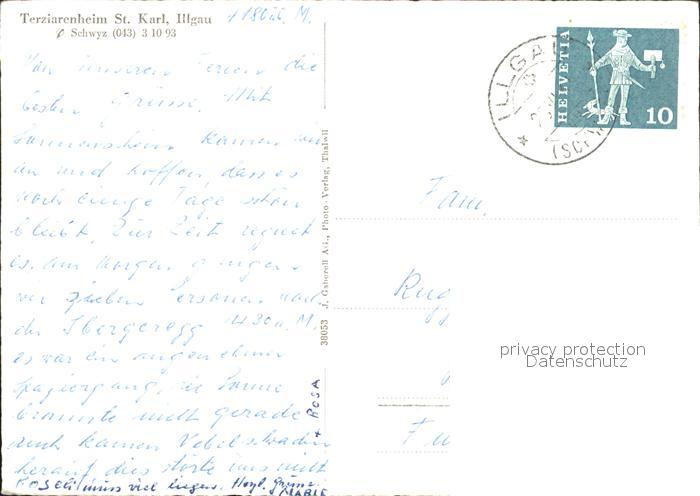 Terziarenheim St. Karl, Illgau 1180 ü. M.
Schwyz (043) 3 10 93
Von unseren Ferien die
besten Grüsse. Mit
Sonnenschein kamen wir
an und hoffen, dass es
noch einige Tage schön
bleibt. Zur Zeit regnet
es. am Morgen gingen
wir sieben Personen nach
der Ibergeregg 1430 ü. M.
es war ein angenehmer
Spaziergang, die Sonne
brannte nicht gerade
auch kamen Nebelschwaden
herauf dies störte uns nicht
Roseli muss viel liegen. Hrzl. Grüsse
MARIE
+ ROSA
38053 J. Gaberell A.G., Photo-Verlag, Thalwil
ILLGAU
(SCHWYZ)
HELVETIA
10
Fam.
privacy protection
Datenschutz